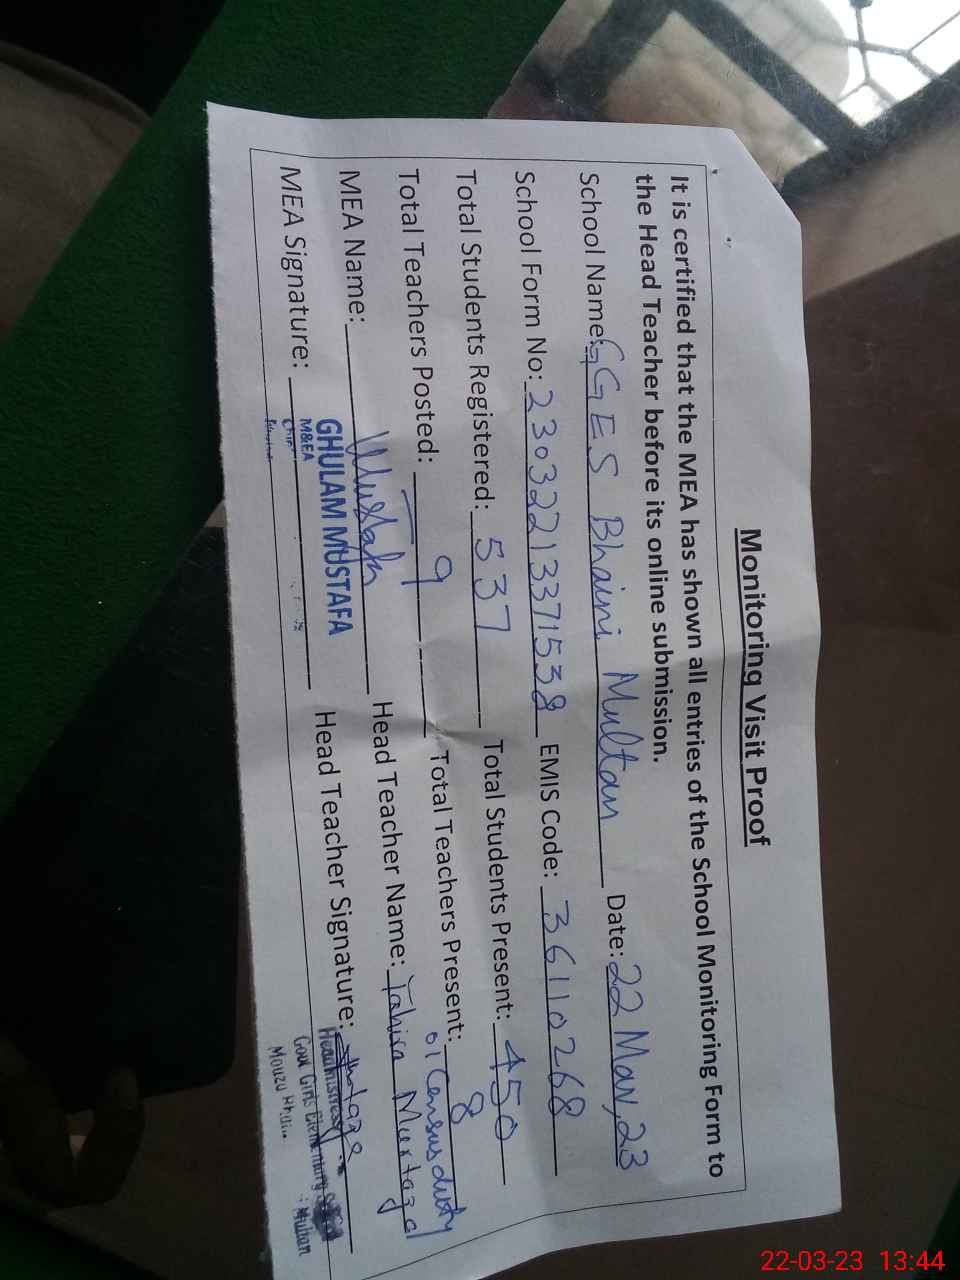 Monitoring Visit Proof
It is certified that the MEA has shown all entries of the School Monitoring Form to
the Head Teacher before its online submission.
School Name: GGES Bhaini Multan Date: 22 Mar, 23
School Form No: 23032213371538 EMIS Code: 36110268
Total Students Registered: 537 Total Students Present: 450
Total Teachers Posted: 9 Total Teachers Present: 8
01 Census duty
MEA Name: Mustafa Head Teacher Name: Tahira Murtaza
GHULAM MUSTAFA
M&EA
MEA Signature: Head Teacher Signature:
Headmistress
Govt Girls Elementary
Mouza Multan
22-03-23 13:44